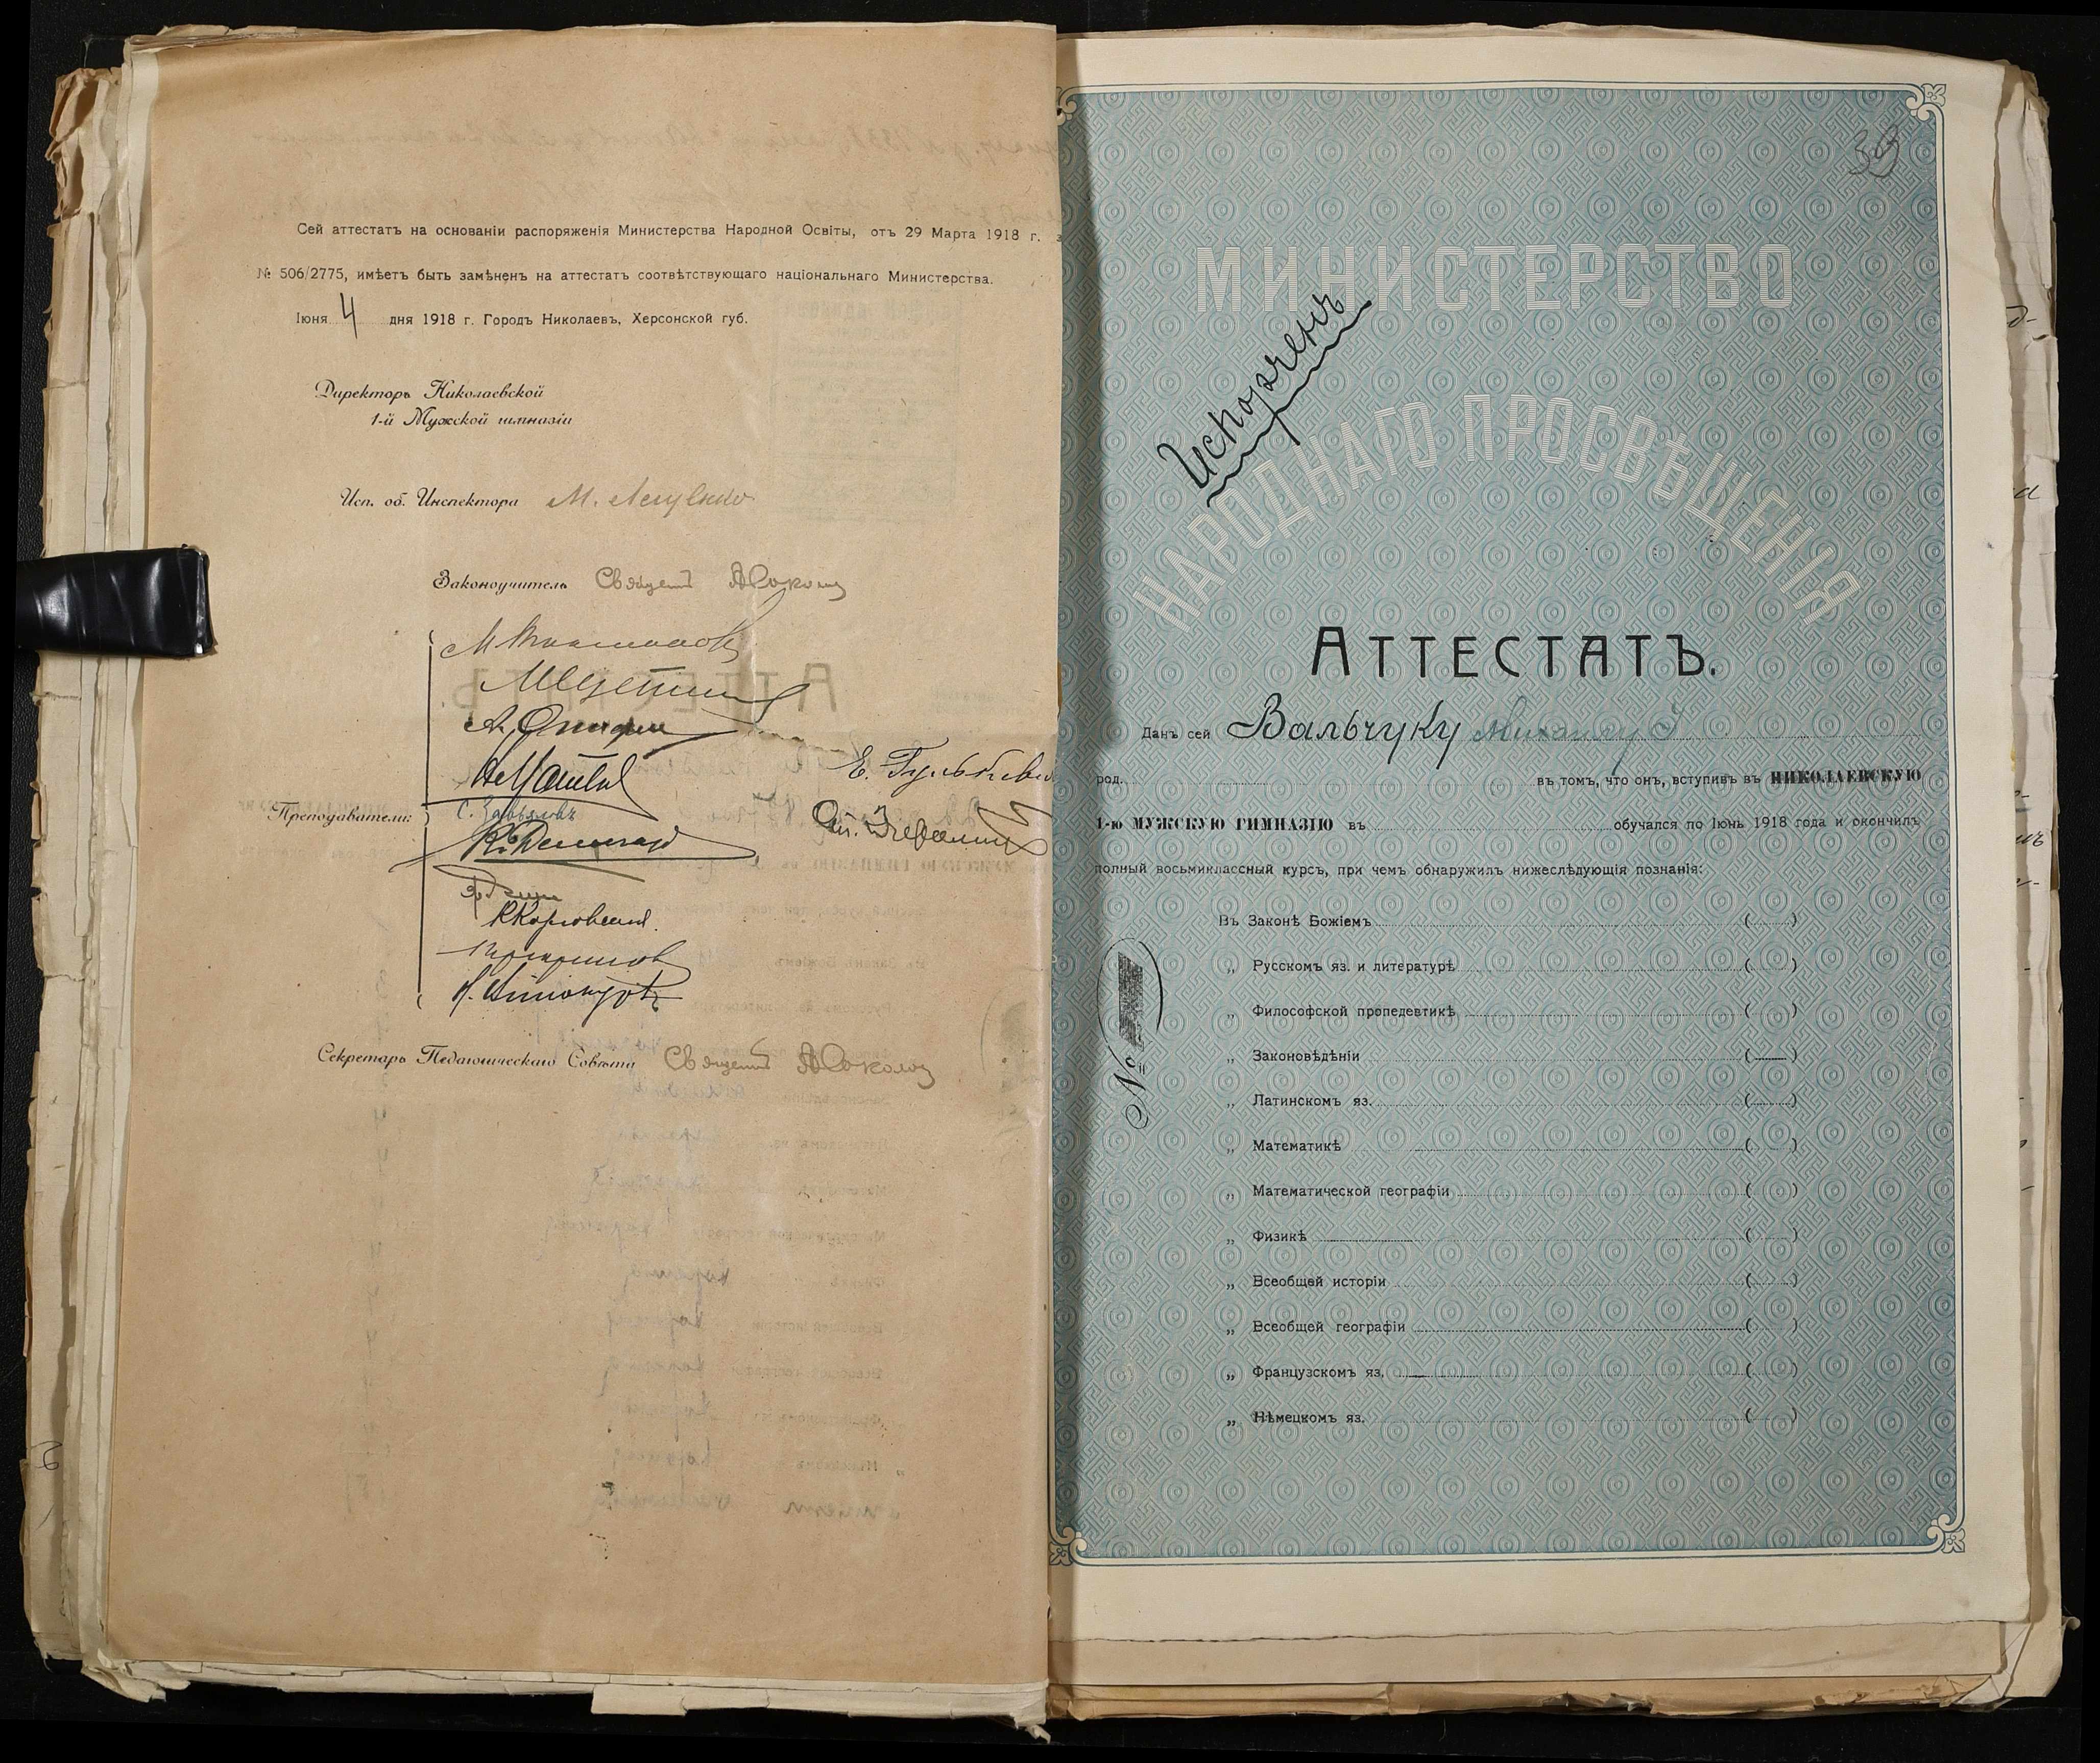 Сей аттестатъ на основаніи распоряженія Министерства Народной Освіты, отъ 29 Марта 1918 г. з
№ 506/2775, имѣетъ быть замѣненъ на аттестатъ соотвѣтствующаго національнаго Министерства.
Іюня 4 дня 1918 г. Городъ Николаевъ, Херсонской губ.
Директоръ Николаевской
1-й Мужской гимназіи
Исп. об. Инспектора М.
Законоучитель Священ
Е.
Преподаватели: С. Завьяловъ
Секретарь Педагогическаго Совѣта Священ
39
МИНИСТЕРСТВО
НАРОДНАГО ПРОСВѢЩЕНІЯ
Испорченъ
АТТЕСТАТЪ.
Данъ сей Вальчуку Михаилу
род. въ томъ, что онъ, вступивъ въ НИКОЛАЕВСКУЮ
1-ю МУЖСКУЮ ГИМНАЗІЮ въ обучался по Іюнь 1918 года и окончилъ
полный восьмиклассный курсъ, при чемъ обнаружилъ нижеслѣдующія познанія:
Въ Законѣ Божіемъ ( )
„ Русскомъ яз. и литературѣ ( )
„ Философской пропедевтикѣ ( )
„ Законовѣдѣніи ( )
„ Латинскомъ яз. ( )
„ Математикѣ ( )
„ Математической географіи ( )
„ Физикѣ ( )
„ Всеобщей исторіи ( )
„ Всеобщей географіи ( )
„ Французскомъ яз. ( )
„ Нѣмецкомъ яз. ( )
№